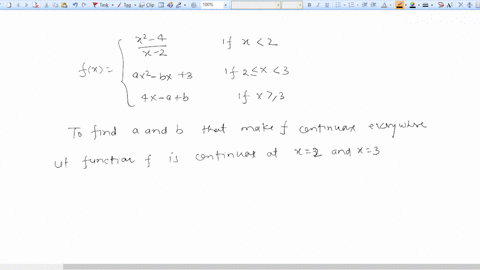 100%
x²-4
x-2
if x < 2
f(x) =
ax²-bx +3
if 2≤x < 3
4x-a+b
if x ≥ 3
To find a and b that make f continuous everywhere
Let function f is continuous at x=2 and x=3